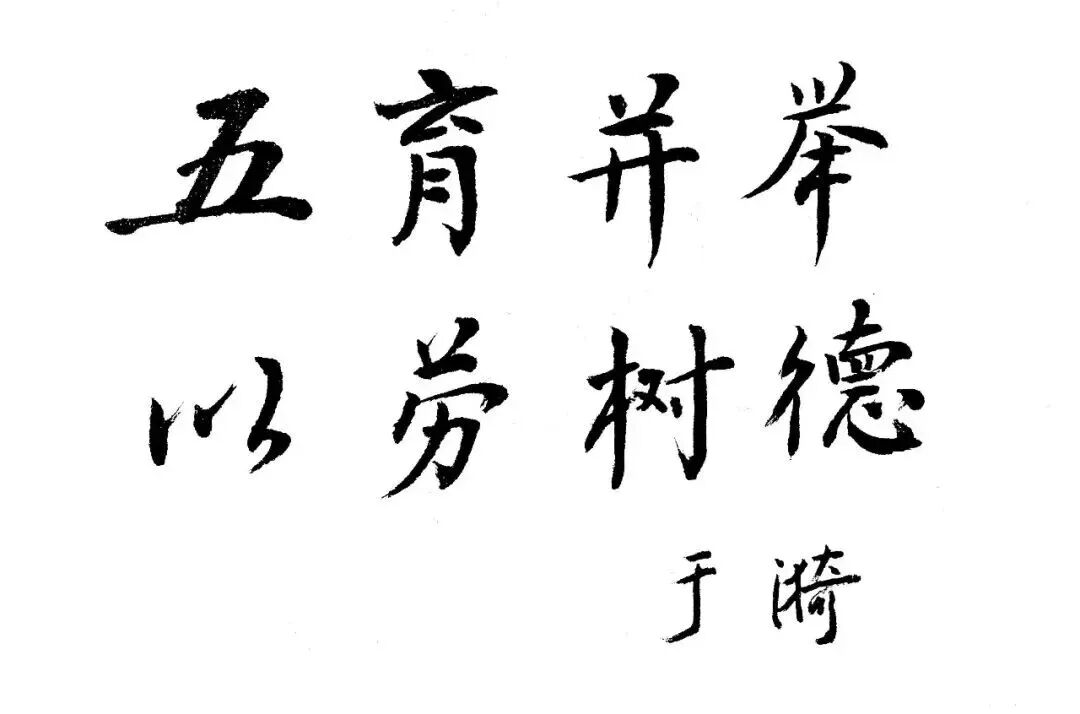 五育并举
以劳树德
于漪